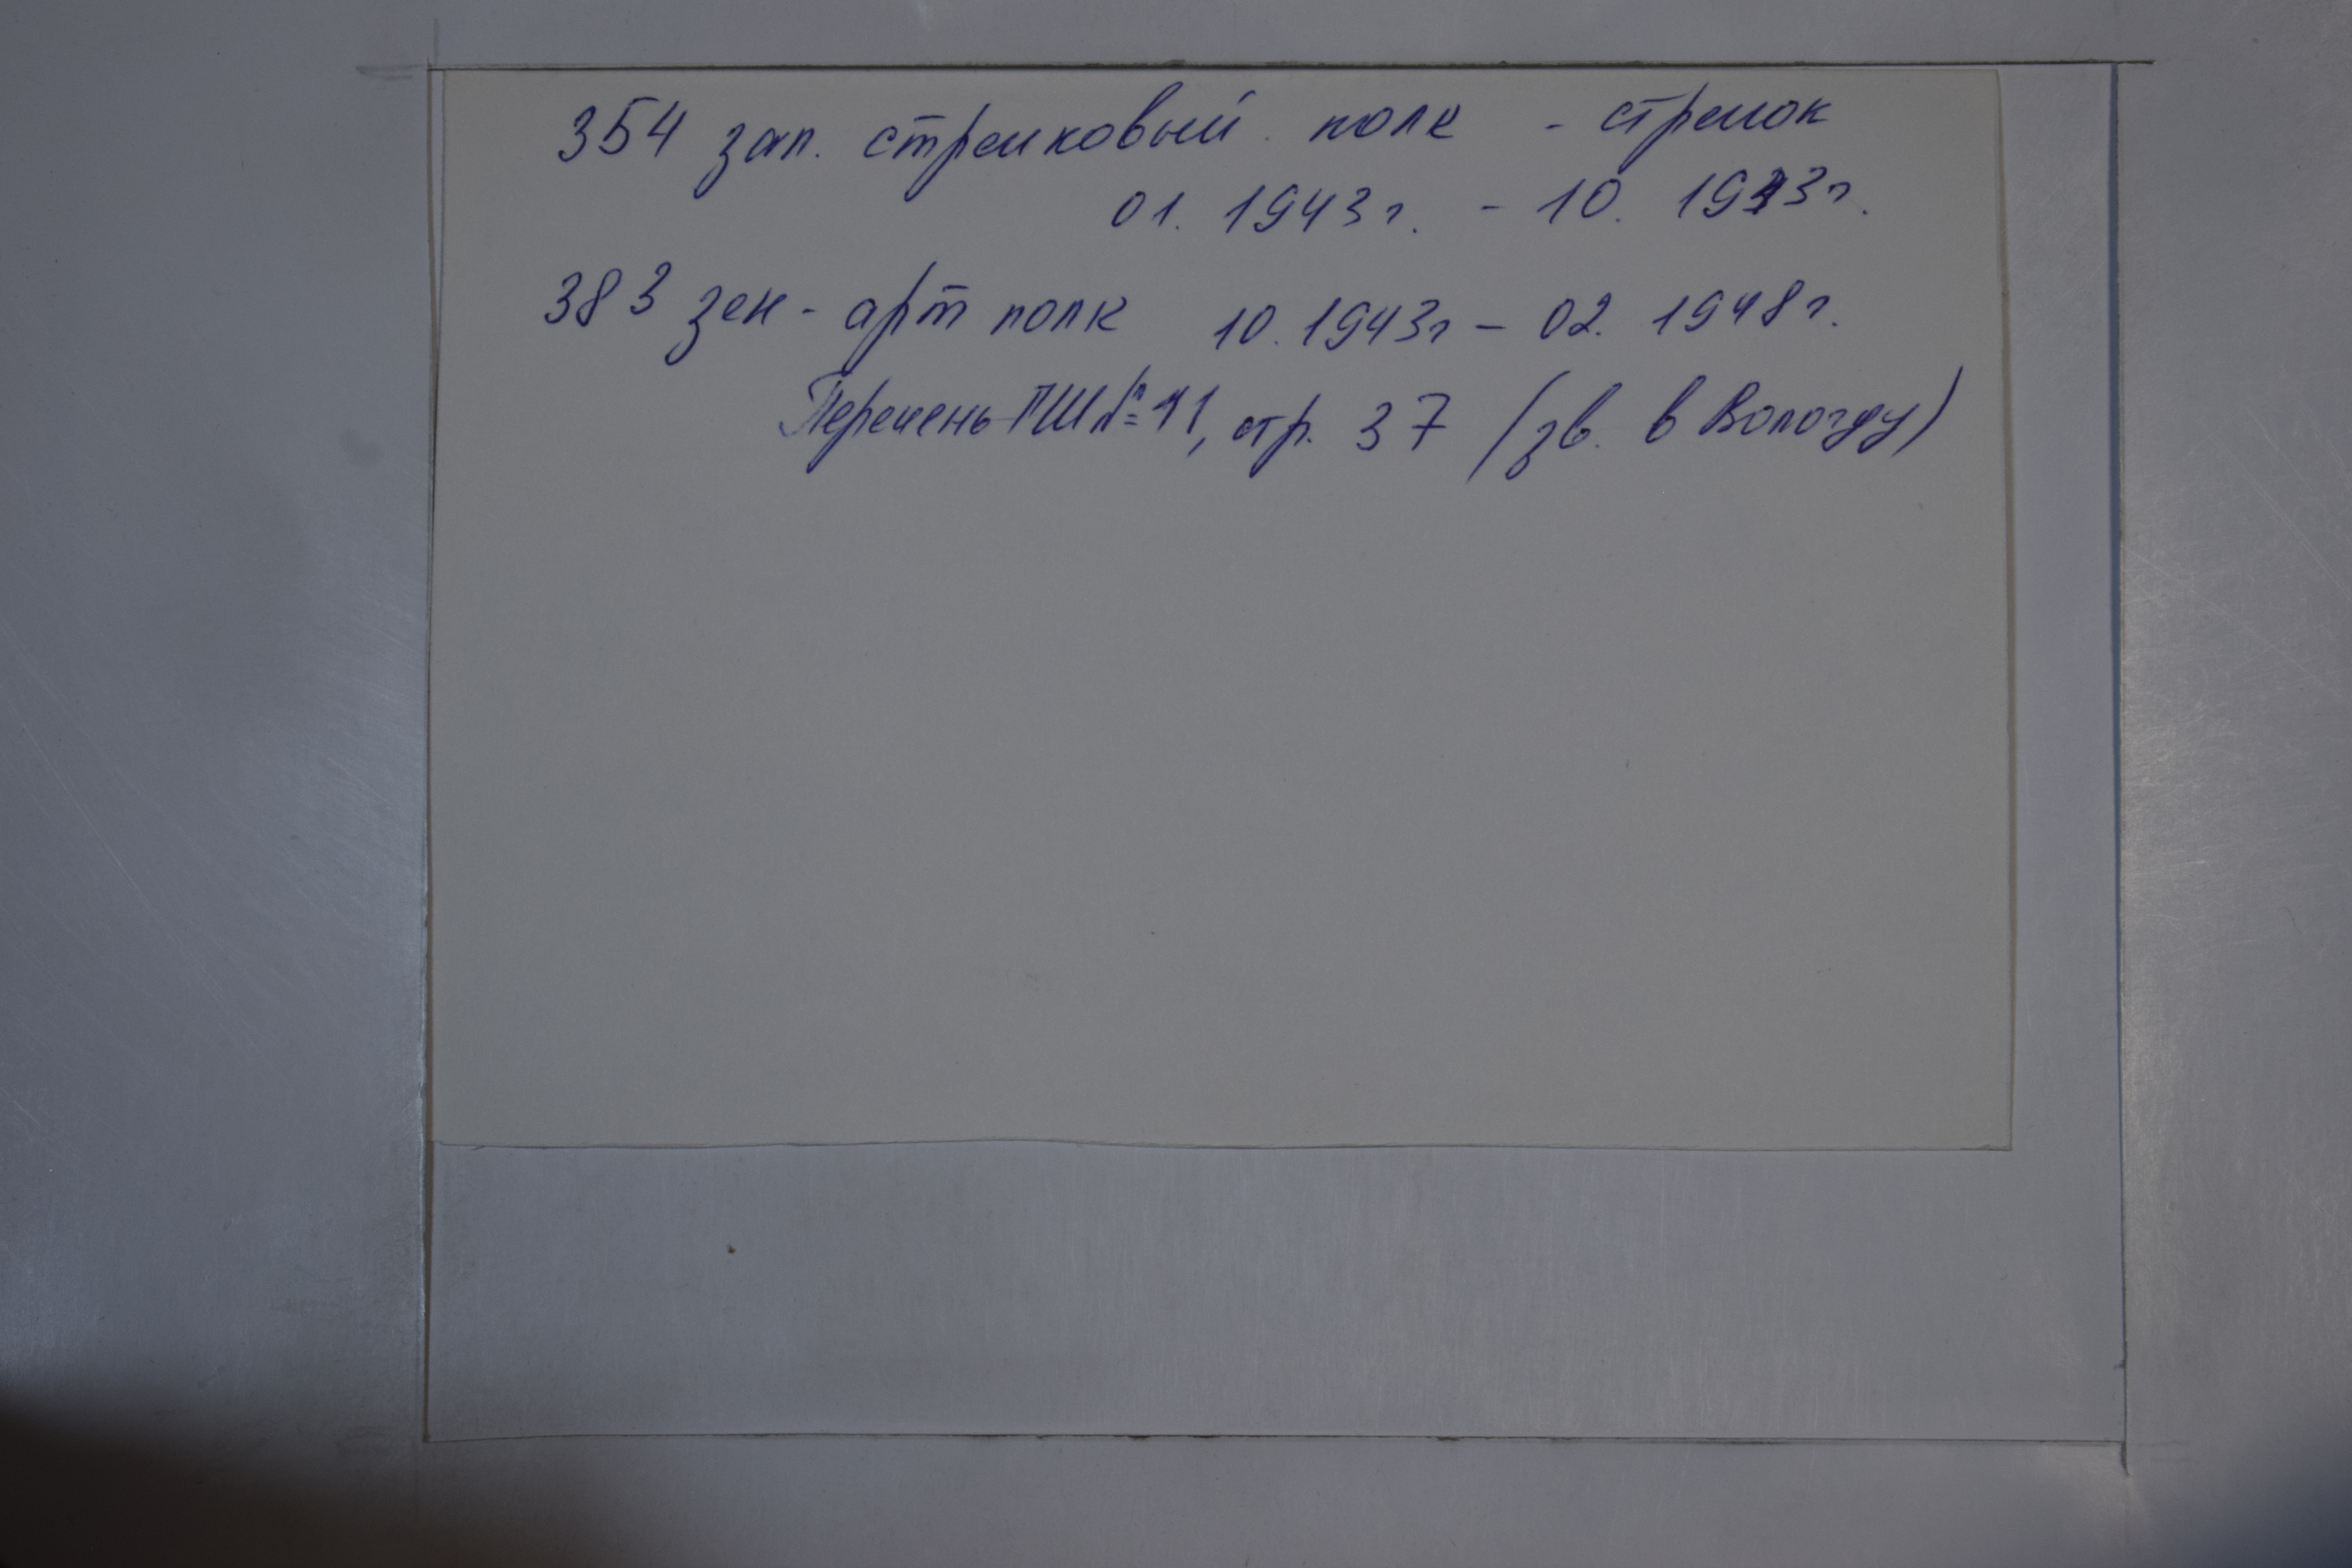 354 зап. стрелковый полк - стрелок
01. 1943 г. - 10. 1943 г.
383 зен - арт полк 10. 1943 г - 02. 1948 г.
Перечень ГШ № 11, стр. 37 (зв. в Вологду)